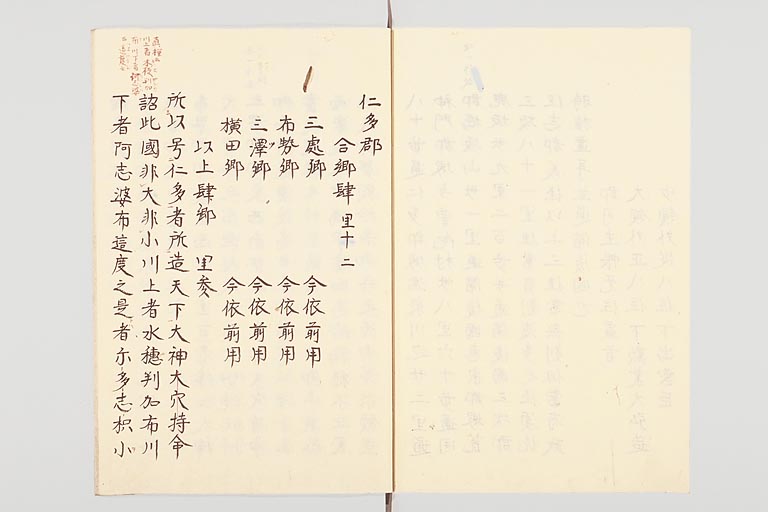 仁多郡
合郷肆 里十二
三處郷 今依前用
布勢郷 今依前用
三澤郷 今依前用
横田郷 今依前用
以上肆郷 里参
所以号仁多者所造天下大神大穴持命
詔此國非大非小川上者水穗判加布川
下者阿志婆布這度之是者尓多志枳小